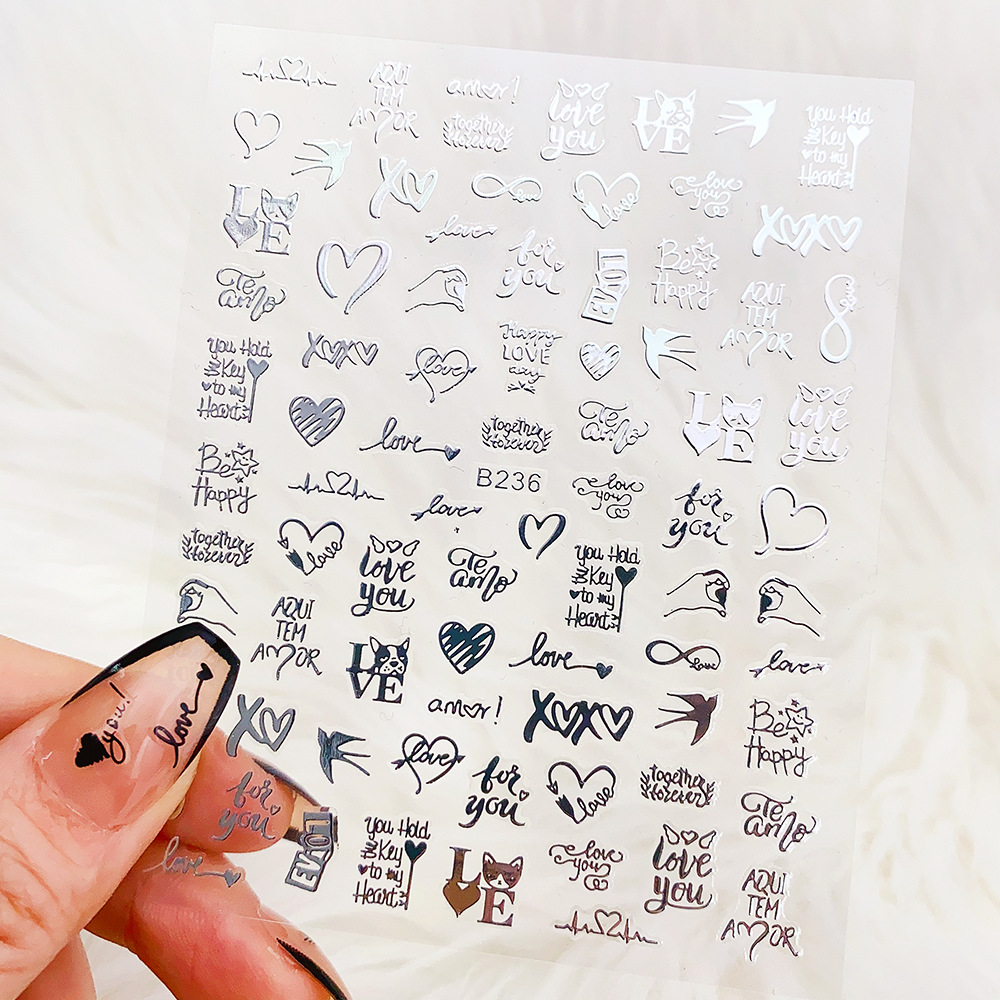 AQUI
TEM
AMOR
amor!
together
forever
love
you
LOVE
You Hold
the Key
to my
Heart
XO
love
love
love
you
XOXO
LOVE
love
for
you
LOVE
Be
Happy
AQUI
TEM
AMOR
love
Te
amo
You Hold
the Key
to my
Heart
XOXO
love
Happy
LOVE
day
Te
amo
LOVE
love
you
love
together
forever
Be
Happy
B236
love
you
love
for
you
together
forever
love
love
you
Te
amo
You Hold
the Key
to my
Heart
AQUI
TEM
AMOR
LOVE
love
love
love
you!
love
XO
amor!
XOXO
Be
Happy
love
for
you
love
together
forever
Te
amo
for
you
love
LOVE
You Hold
the Key
to my
Heart
LOVE
love
you
love
you
AQUI
TEM
AMOR